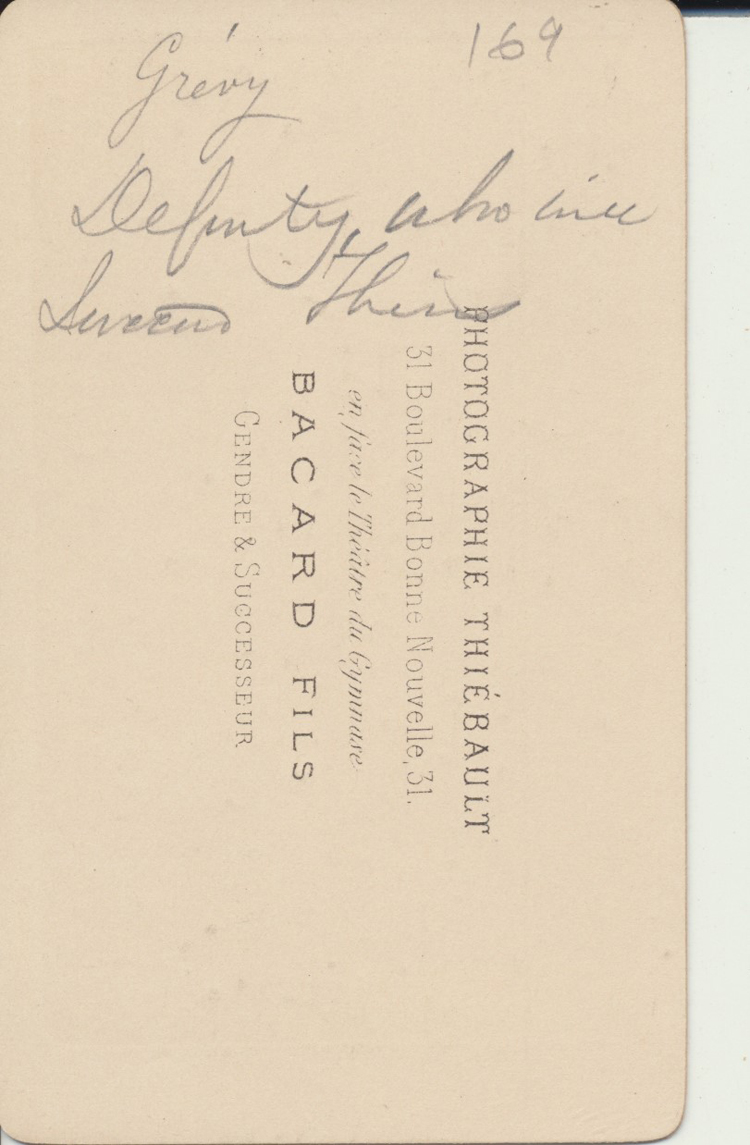 169
Grévy
Deputy, who will
Succeed Thiers
PHOTOGRAPHIE THIÉBAULT
31 Boulevard Bonne Nouvelle, 31.
en face le Théâtre du Gymnase
BACARD FILS
GENDRE & SUCCESSEUR